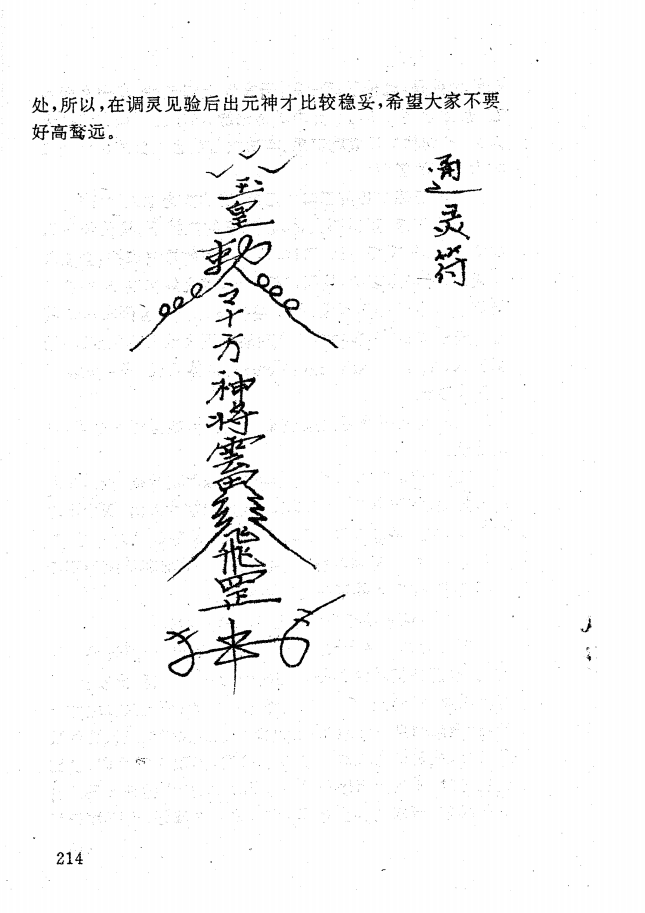 处,所以,在调灵见验后出元神才比较稳妥,希望大家不要
好高骛远。
通灵符
玉皇敕
令十方神将
飛罡
214